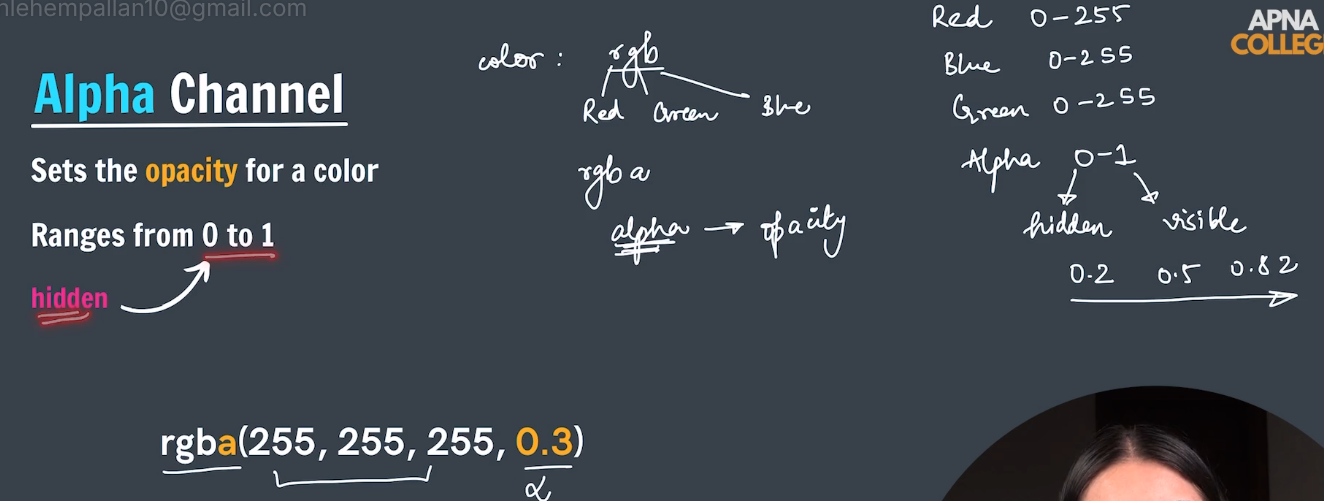 nlehempallan10@gmail.com
APNA
COLLEG
Alpha Channel
Sets the opacity for a color
Ranges from 0 to 1
hidden
color : rgb
Red Green Blue
rgb a
alpha → opacity
Red 0-255
Blue 0-255
Green 0-255
Alpha 0-1
hidden visible
0.2 0.5 0.82
rgba(255, 255, 255, 0.3)
α